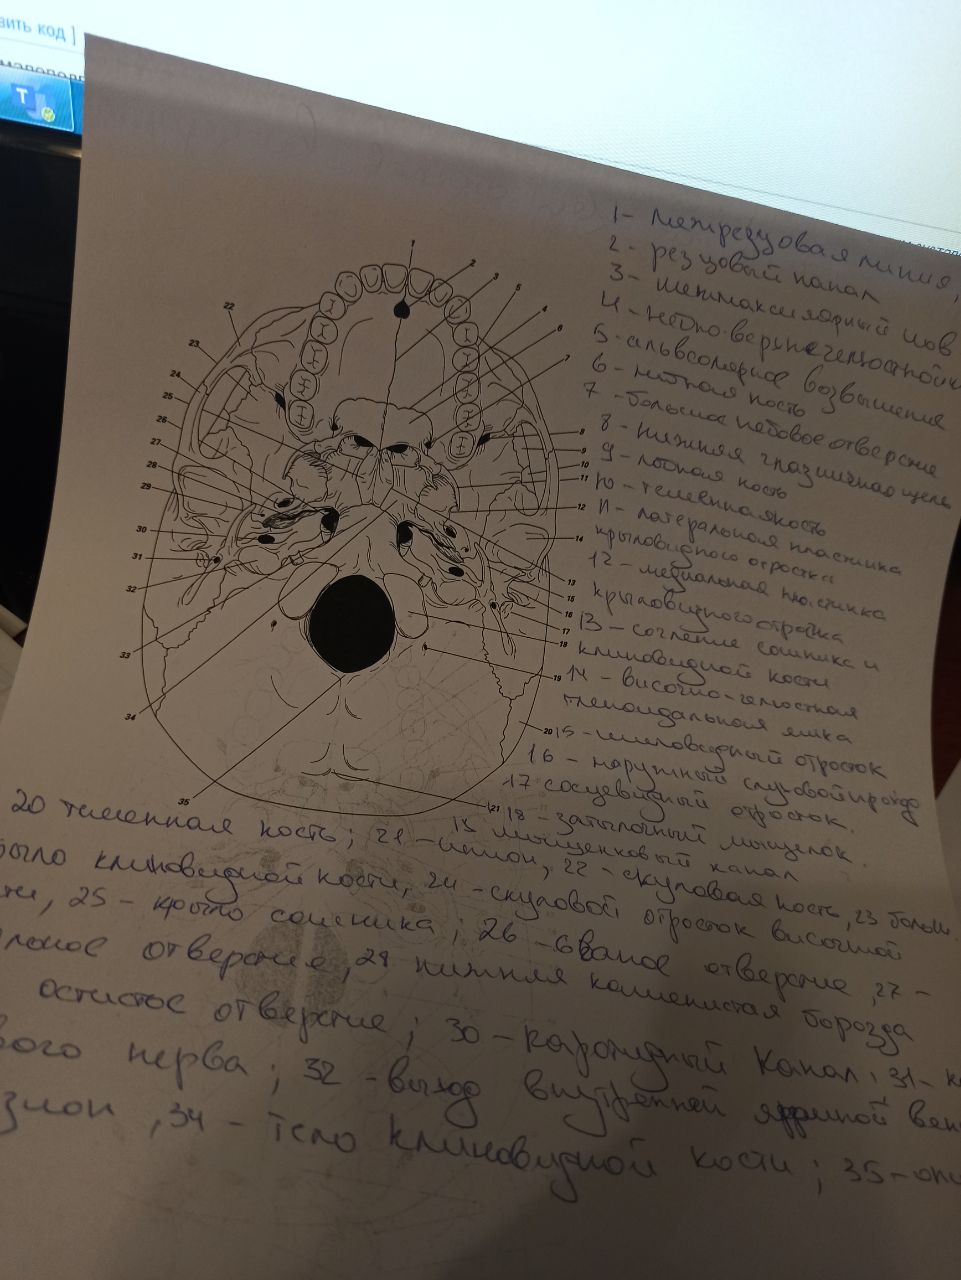 вить код ]
T
1
2
3
5
4
6
7
22
23
24
25
26
27
28
29
30
31
32
33
34
35
8
9
10
11
12
14
13
15
16
17
18
19
20
21
1- межрезцовая линия,
2 - резцовый канал
3 - межмаксилярный шов
4 - небно-верхнечелюстной
5 - альвеолярное возвышение
6 - небная кость
7 - большое небовое отверстие
8 - нижняя глазничная щель
9 - лобная кость
10 - теменная кость
11 - латеральная пластинка
крыловидного отростка
12 - медиальная пластинка
крыловидного отростка
13 - согление сошника и
клиновидной кости
14 - височно-челюстная
гленоидальная ямка
15 - шиловидный отросток
16 - наружный слуховой проход
17 сосцевидный отросток.
18 - затылочный мыщелок.
19 мыщелковый канал
20 теменная кость; 21 - инион, 22 - скуловая кость, 23 больш.
крыло клиновидной кости, 24 - скуловой отросток височной
сти, 25 - крыло сошника; 26 - овальное отверстие, 27 -
отверстие, 28 нижняя каменистая борозда
остистое отверстие; 30 - каротидный канал, 31 - к
вого нерва; 32 - выход внутренней яремной вен
зион, 34 - тело клиновидной кости; 35 - опи